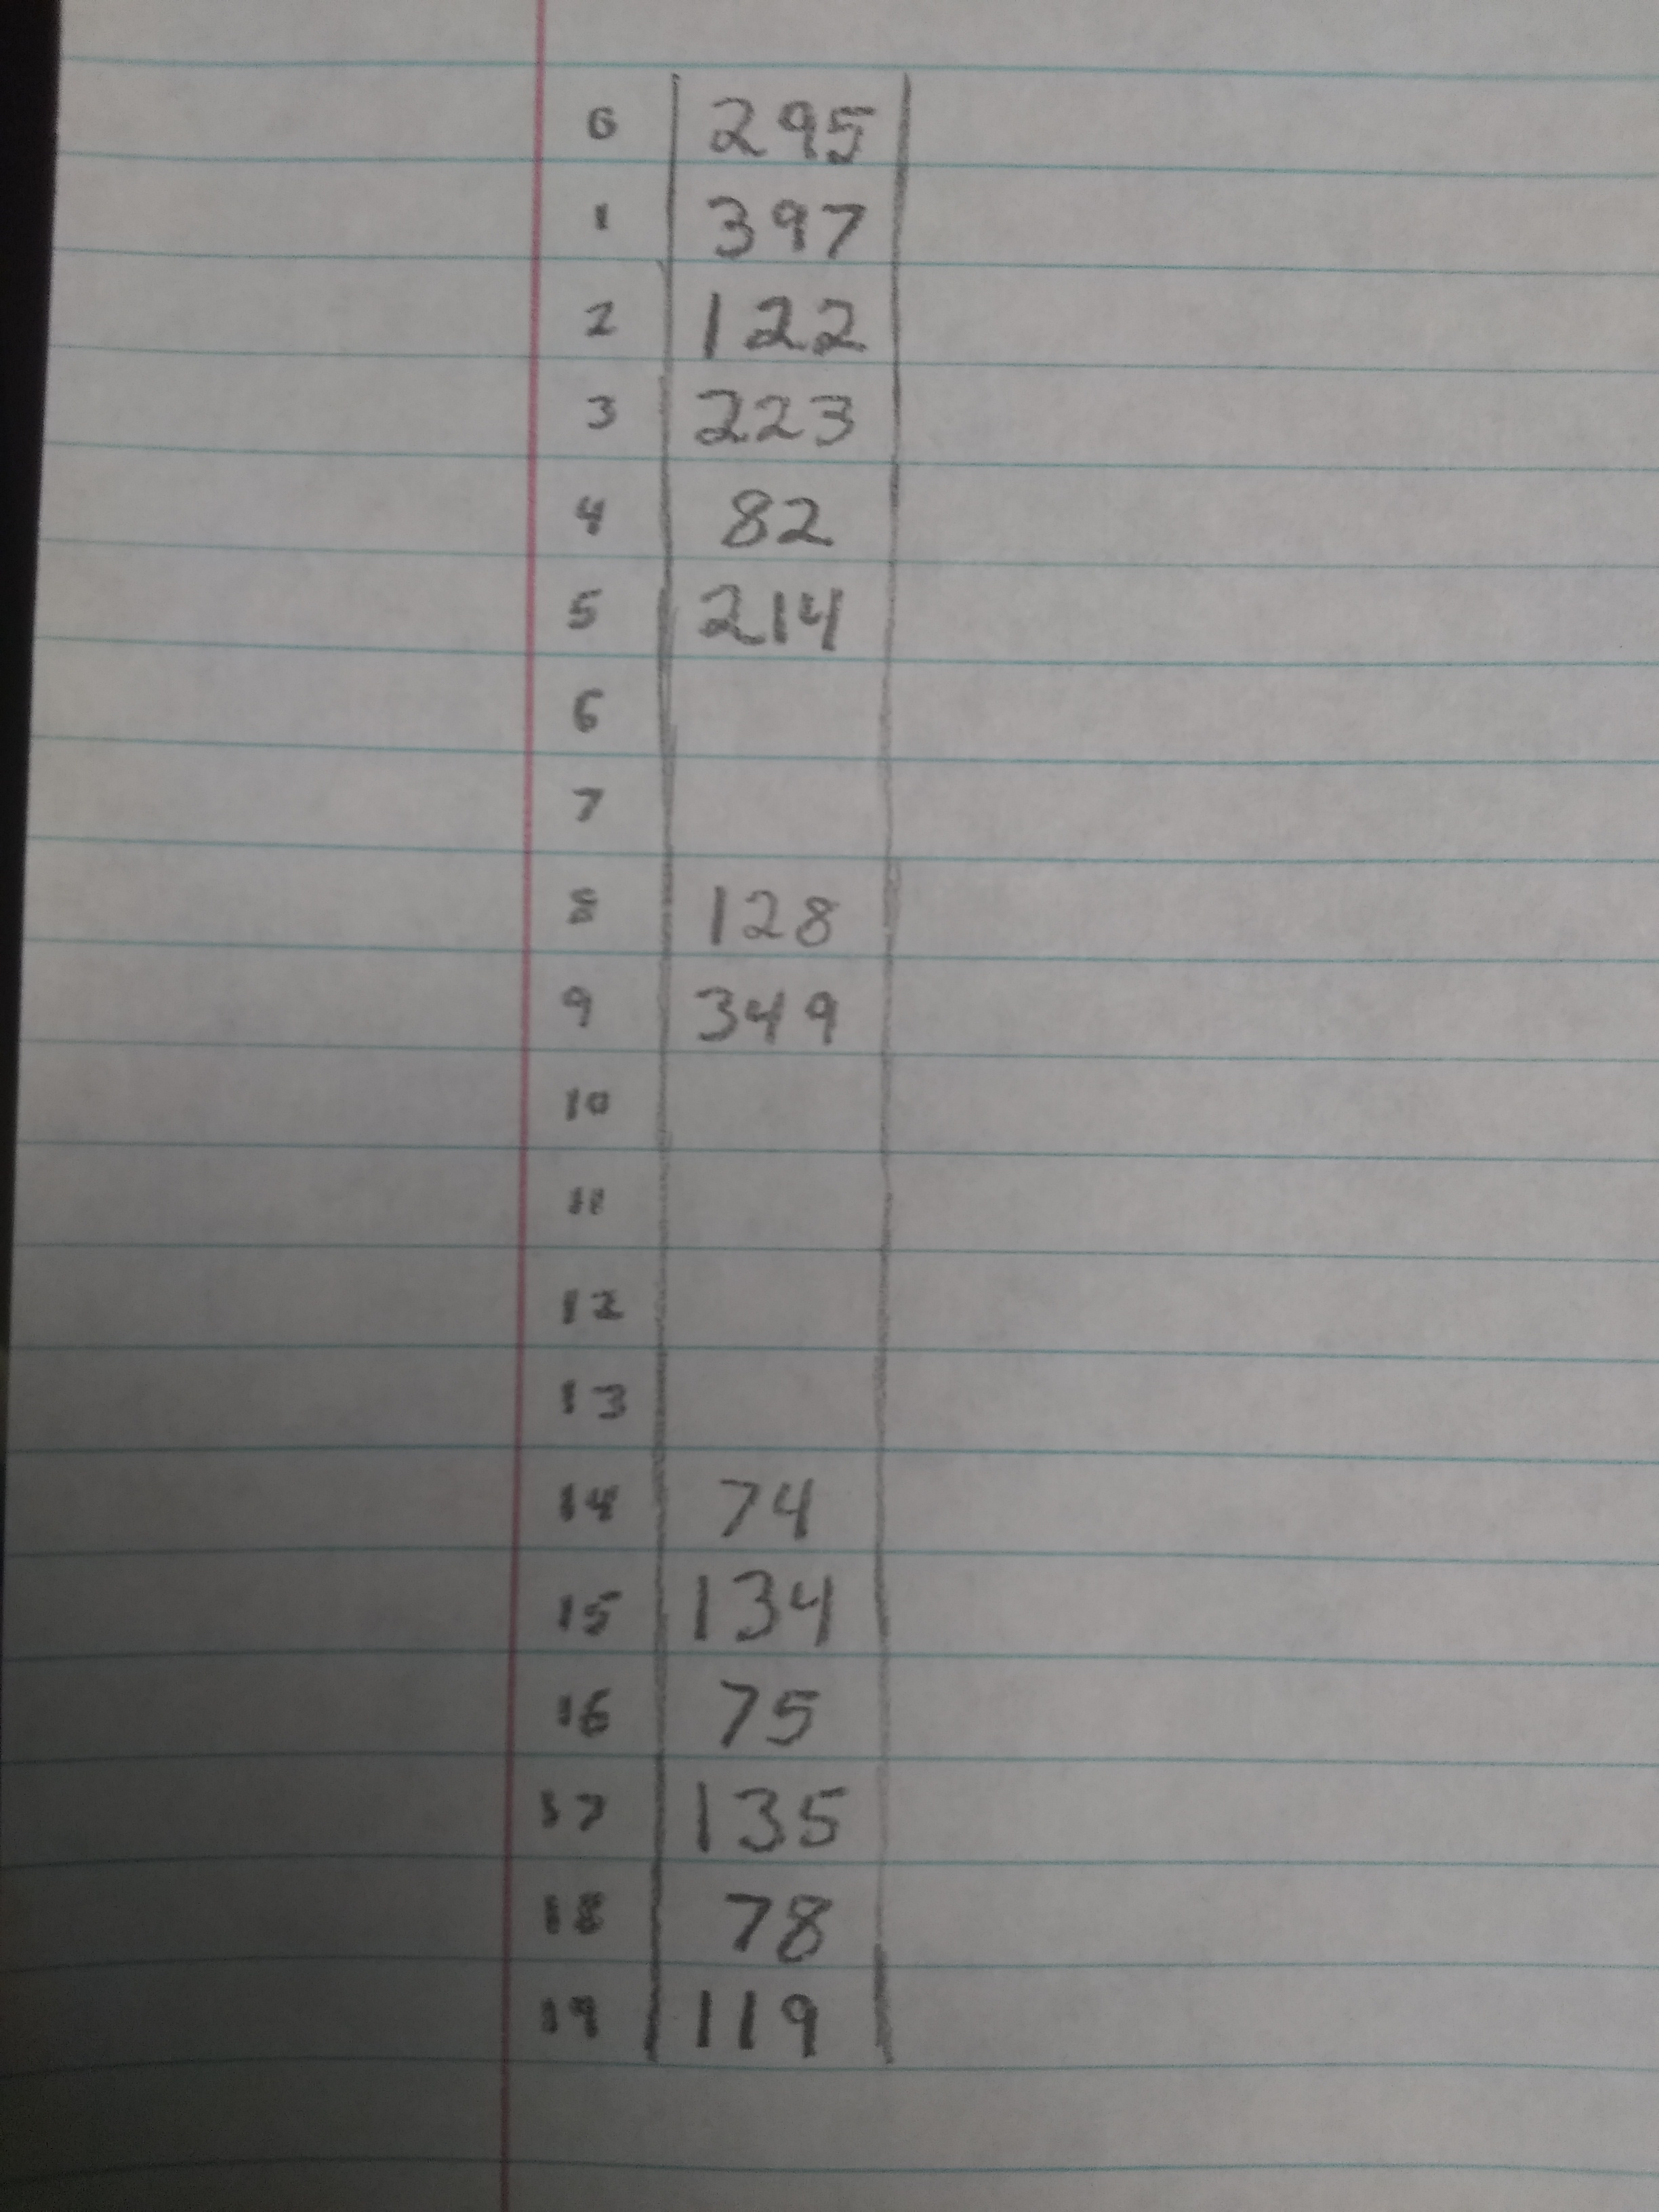 0 295
1 397
2 122
3 223
4 82
5 214
6
7
8 128
9 349
10
11
12
13
14 74
15 134
16 75
17 135
18 78
19 119